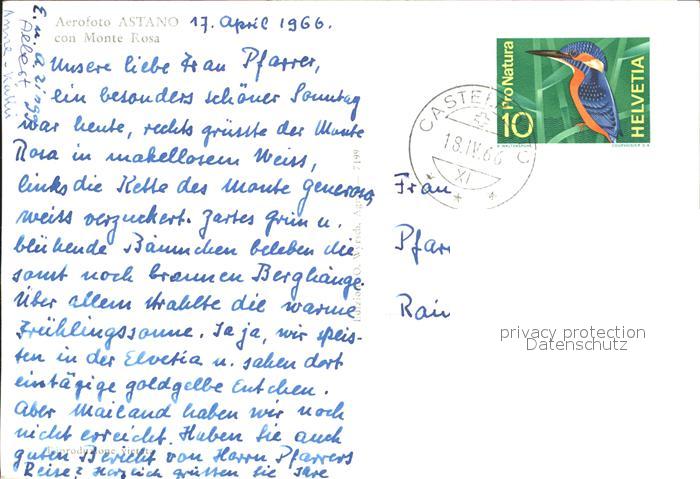 Aerofoto ASTANO
con Monte Rosa
17. April 1966.
Unsere liebe Frau Pfarrer,
ein besonders schöner Sonntag
war heute, rechts grüsste der Monte
Rosa in makellosem Weiss,
links die Kette des Monte Generoso,
weiss verzuckert. Zartes Grün u.
blühende Bäumchen beleben die
sonst noch braunen Berghänge.
Über allem strahlte die warme
Frühlingssonne. Ja ja, wir speis-
ten in der Elvetia u. sahen dort
eintägige goldgelbe Entchen.
Aber Mailand haben wir noch
nicht erreicht. Haben Sie auch
guten Bericht von Herrn Pfarrers
Reise? Herzlich grüssen Sie Ihre
Riproduzione vietata
7199
Pro Natura
10
HELVETIA
18.IV.66
XI
Frau
Pfarr
Rain
privacy protection
Datenschutz